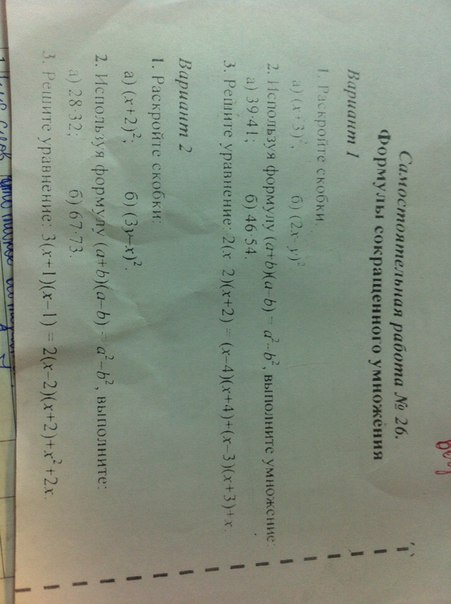 Самостоятельная работа № 26.
Формулы сокращенного умножения
Вариант 1
1. Раскройте скобки
а) (x+3)²; б) (2x-y)²
2. Используя формулу (a+b)(a-b) = a²-b², выполните умножение:
а) 39·41; б) 46·54.
3. Решите уравнение: 2(x 2)(x+2) = (x-4)(x+4)+(x-3)(x+3)+x.
Вариант 2
1. Раскройте скобки:
а) (x+2)²; б) (3y-5)².
2. Используя формулу (a+b)(a-b) = a²-b², выполните:
а) 28·32; б) 67·73.
3. Решите уравнение: 3(x+1)(x-1) = 2(x-2)(x+2)+x²+2x.